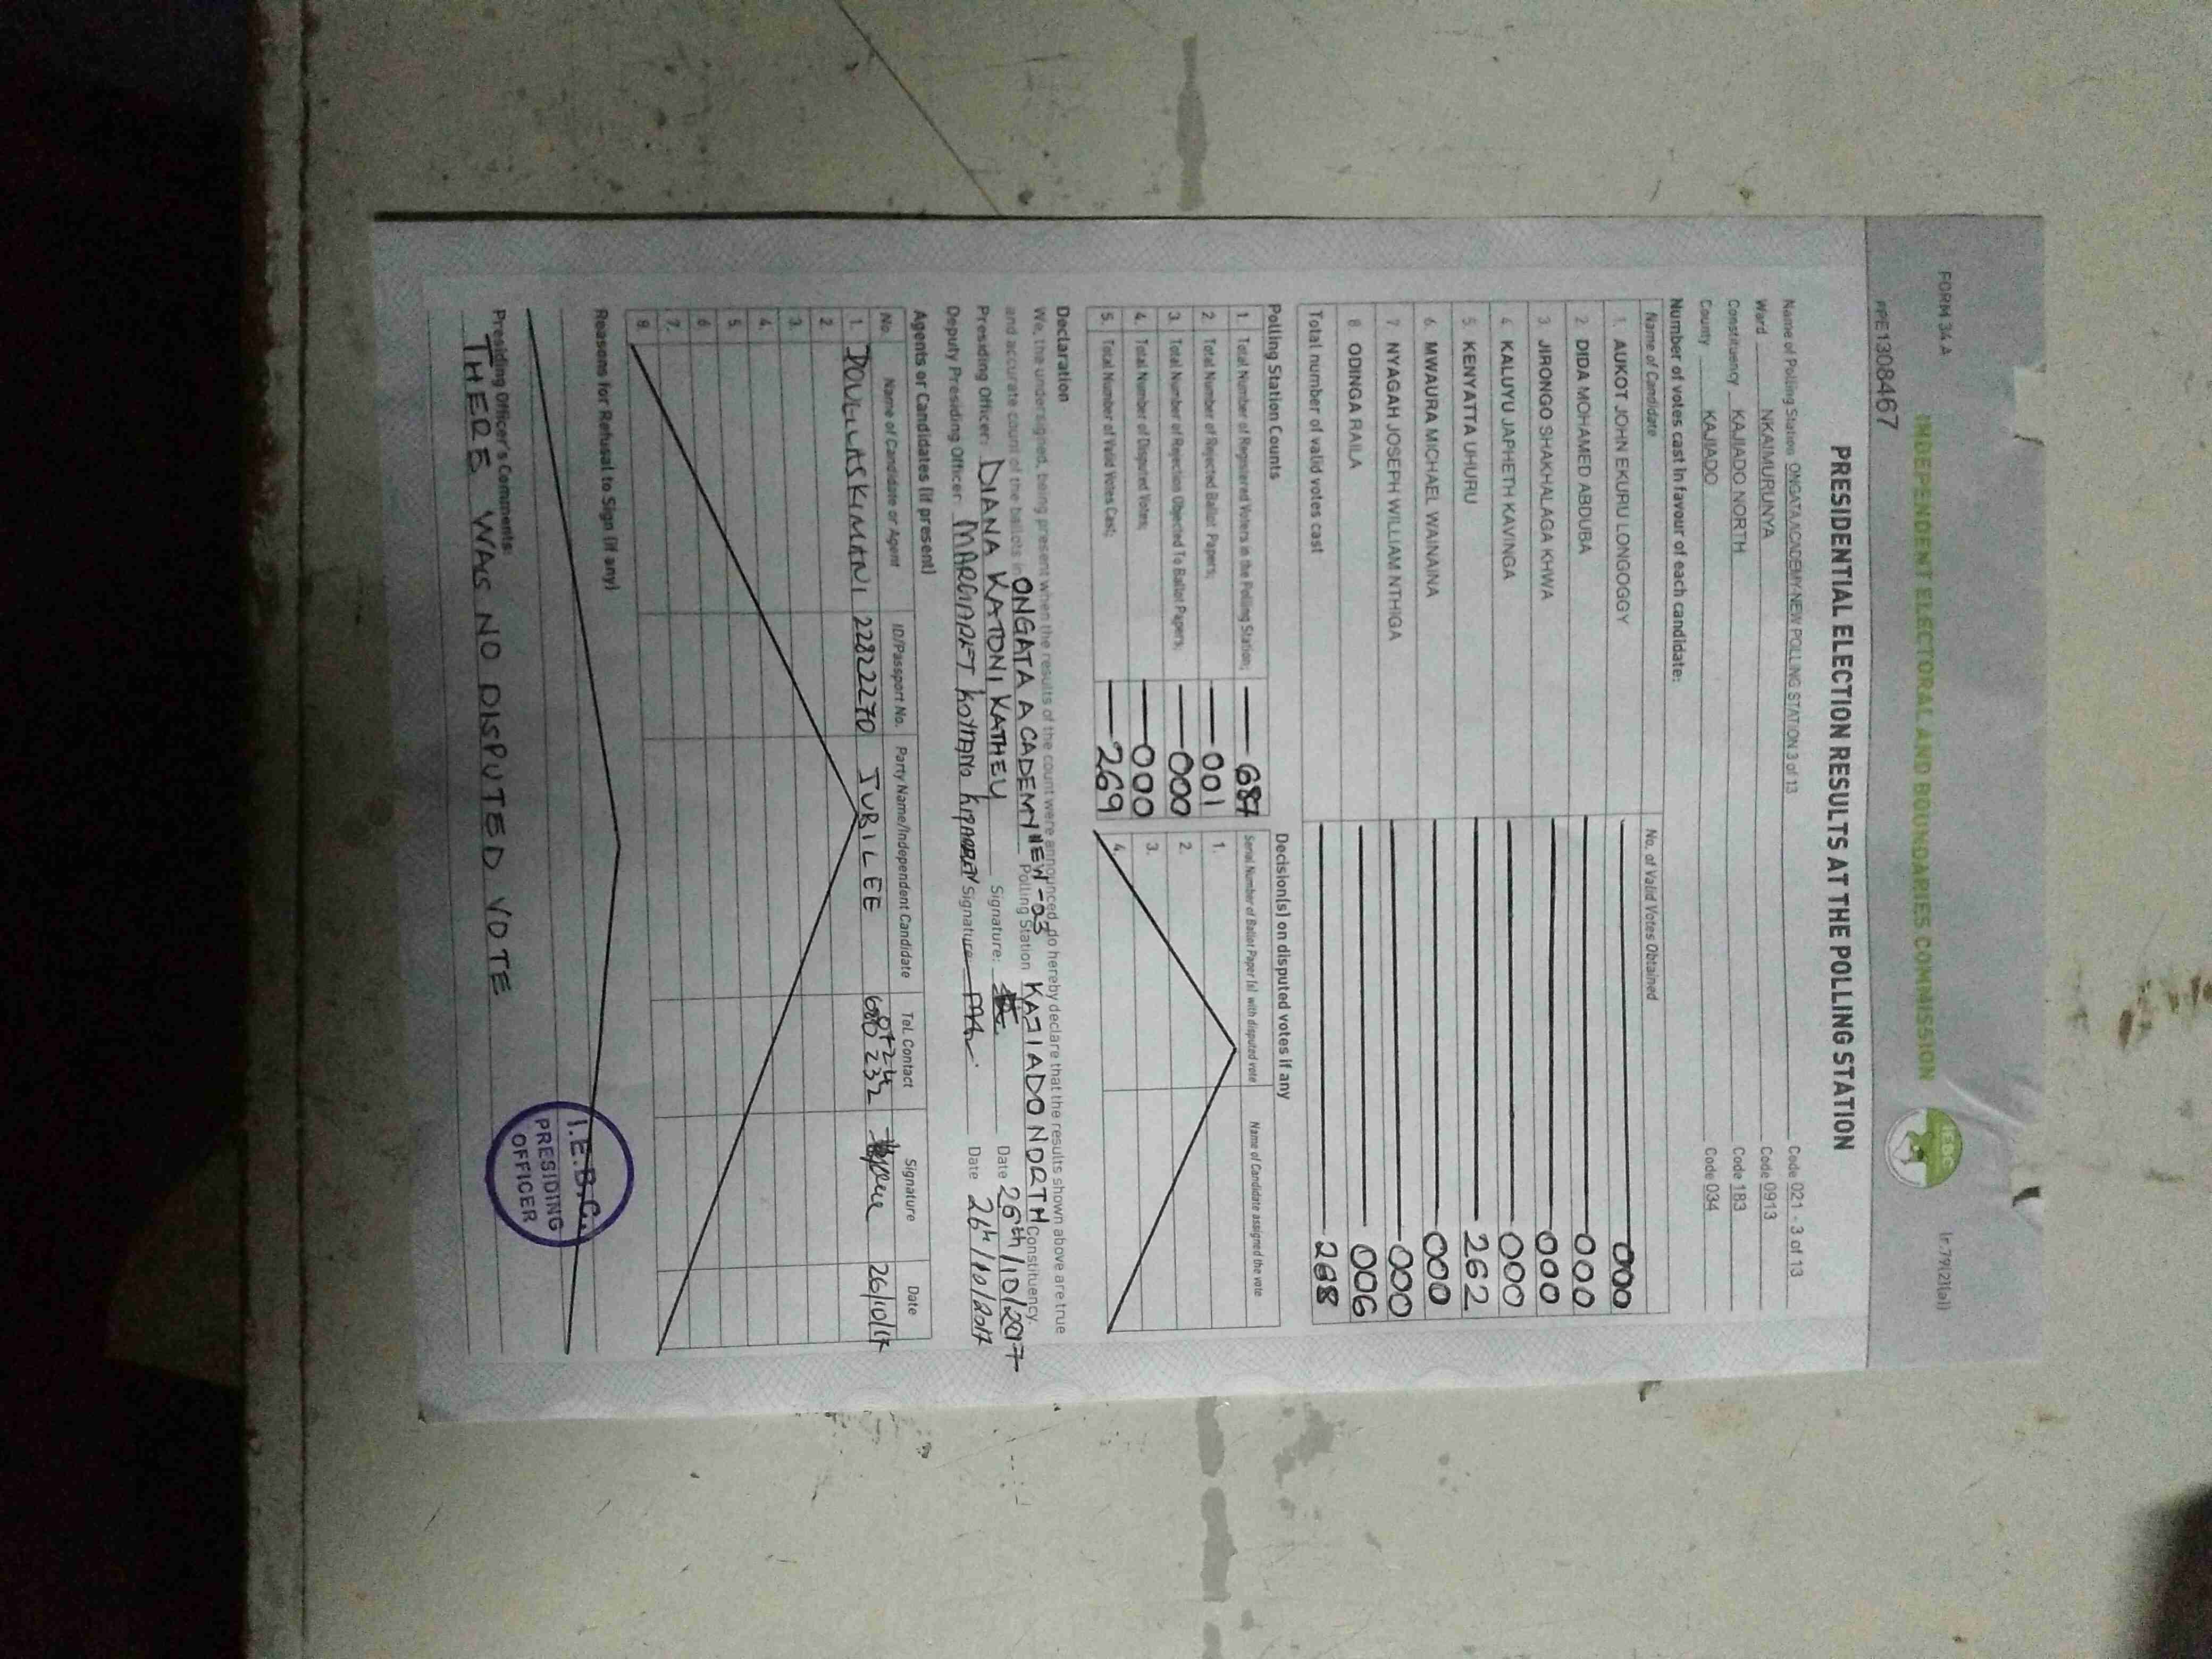 FORM 34 A
(r.79(2)(a))
INDEPENDENT ELECTORAL AND BOUNDARIES COMMISSION
IEBC
PRE1308467
PRESIDENTIAL ELECTION RESULTS AT THE POLLING STATION
Name of Polling Station ONGATA ACADEMY-NEW POLLING STATION 3 of 13 Code 021 - 3 of 13
Ward NKAIMURUNYA Code 0913
Constituency KAJIADO NORTH Code 183
County KAJIADO Code 034
Number of votes cast in favour of each candidate:
Name of Candidate No. of Valid Votes Obtained
1. AUKOT JOHN EKURU LONGOGGY 000
2 DIDA MOHAMED ABDUBA 000
3 JIRONGO SHAKHALAGA KHWA 000
4 KALUYU JAPHETH KAVINGA 000
5. KENYATTA UHURU 262
6 MWAURA MICHAEL WAINAINA 000
7 NYAGAH JOSEPH WILLIAM NTHIGA 000
8 ODINGA RAILA 006
Total number of valid votes cast 268
Polling Station Counts Decision(s) on disputed votes if any
1. Total Number of Registered Voters in the Polling Station; 687 Serial Number of Ballot Paper (s) with disputed vote Name of Candidate assigned the vote
2. Total Number of Rejected Ballot Papers; 001 1.
3. Total Number of Rejection Objected To Ballot Papers; 000 2.
4. Total Number of Disputed Votes; 000 3.
5. Total Number of Valid Votes Cast; 269 4.
Declaration
We, the undersigned, being present when the results of the count were announced, do hereby declare that the results shown above are true
and accurate count of the ballots in ONGATA ACADEMY NEW-03 Polling Station KAJIADO NORTH Constituency.
Presiding Officer: DIANA KATONI KATHEU Signature: Date 26th/10/2017
Deputy Presiding Officer: MARGARET Signature: Date 26th/10/2017
Agents or Candidates (if present)
No. Name of Candidate or Agent ID/Passport No. Party Name/Independent Candidate Tel. Contact Signature Date
1. DOUGLAS KIMANI 22822270 JUBILEE 26/10/17
2.
3.
4.
5.
6
7.
8.
Reasons for Refusal to Sign (if any)
Presiding Officer's Comments:
THERE WAS NO DISPUTED VOTE
I.E.B.C.
PRESIDING
OFFICER